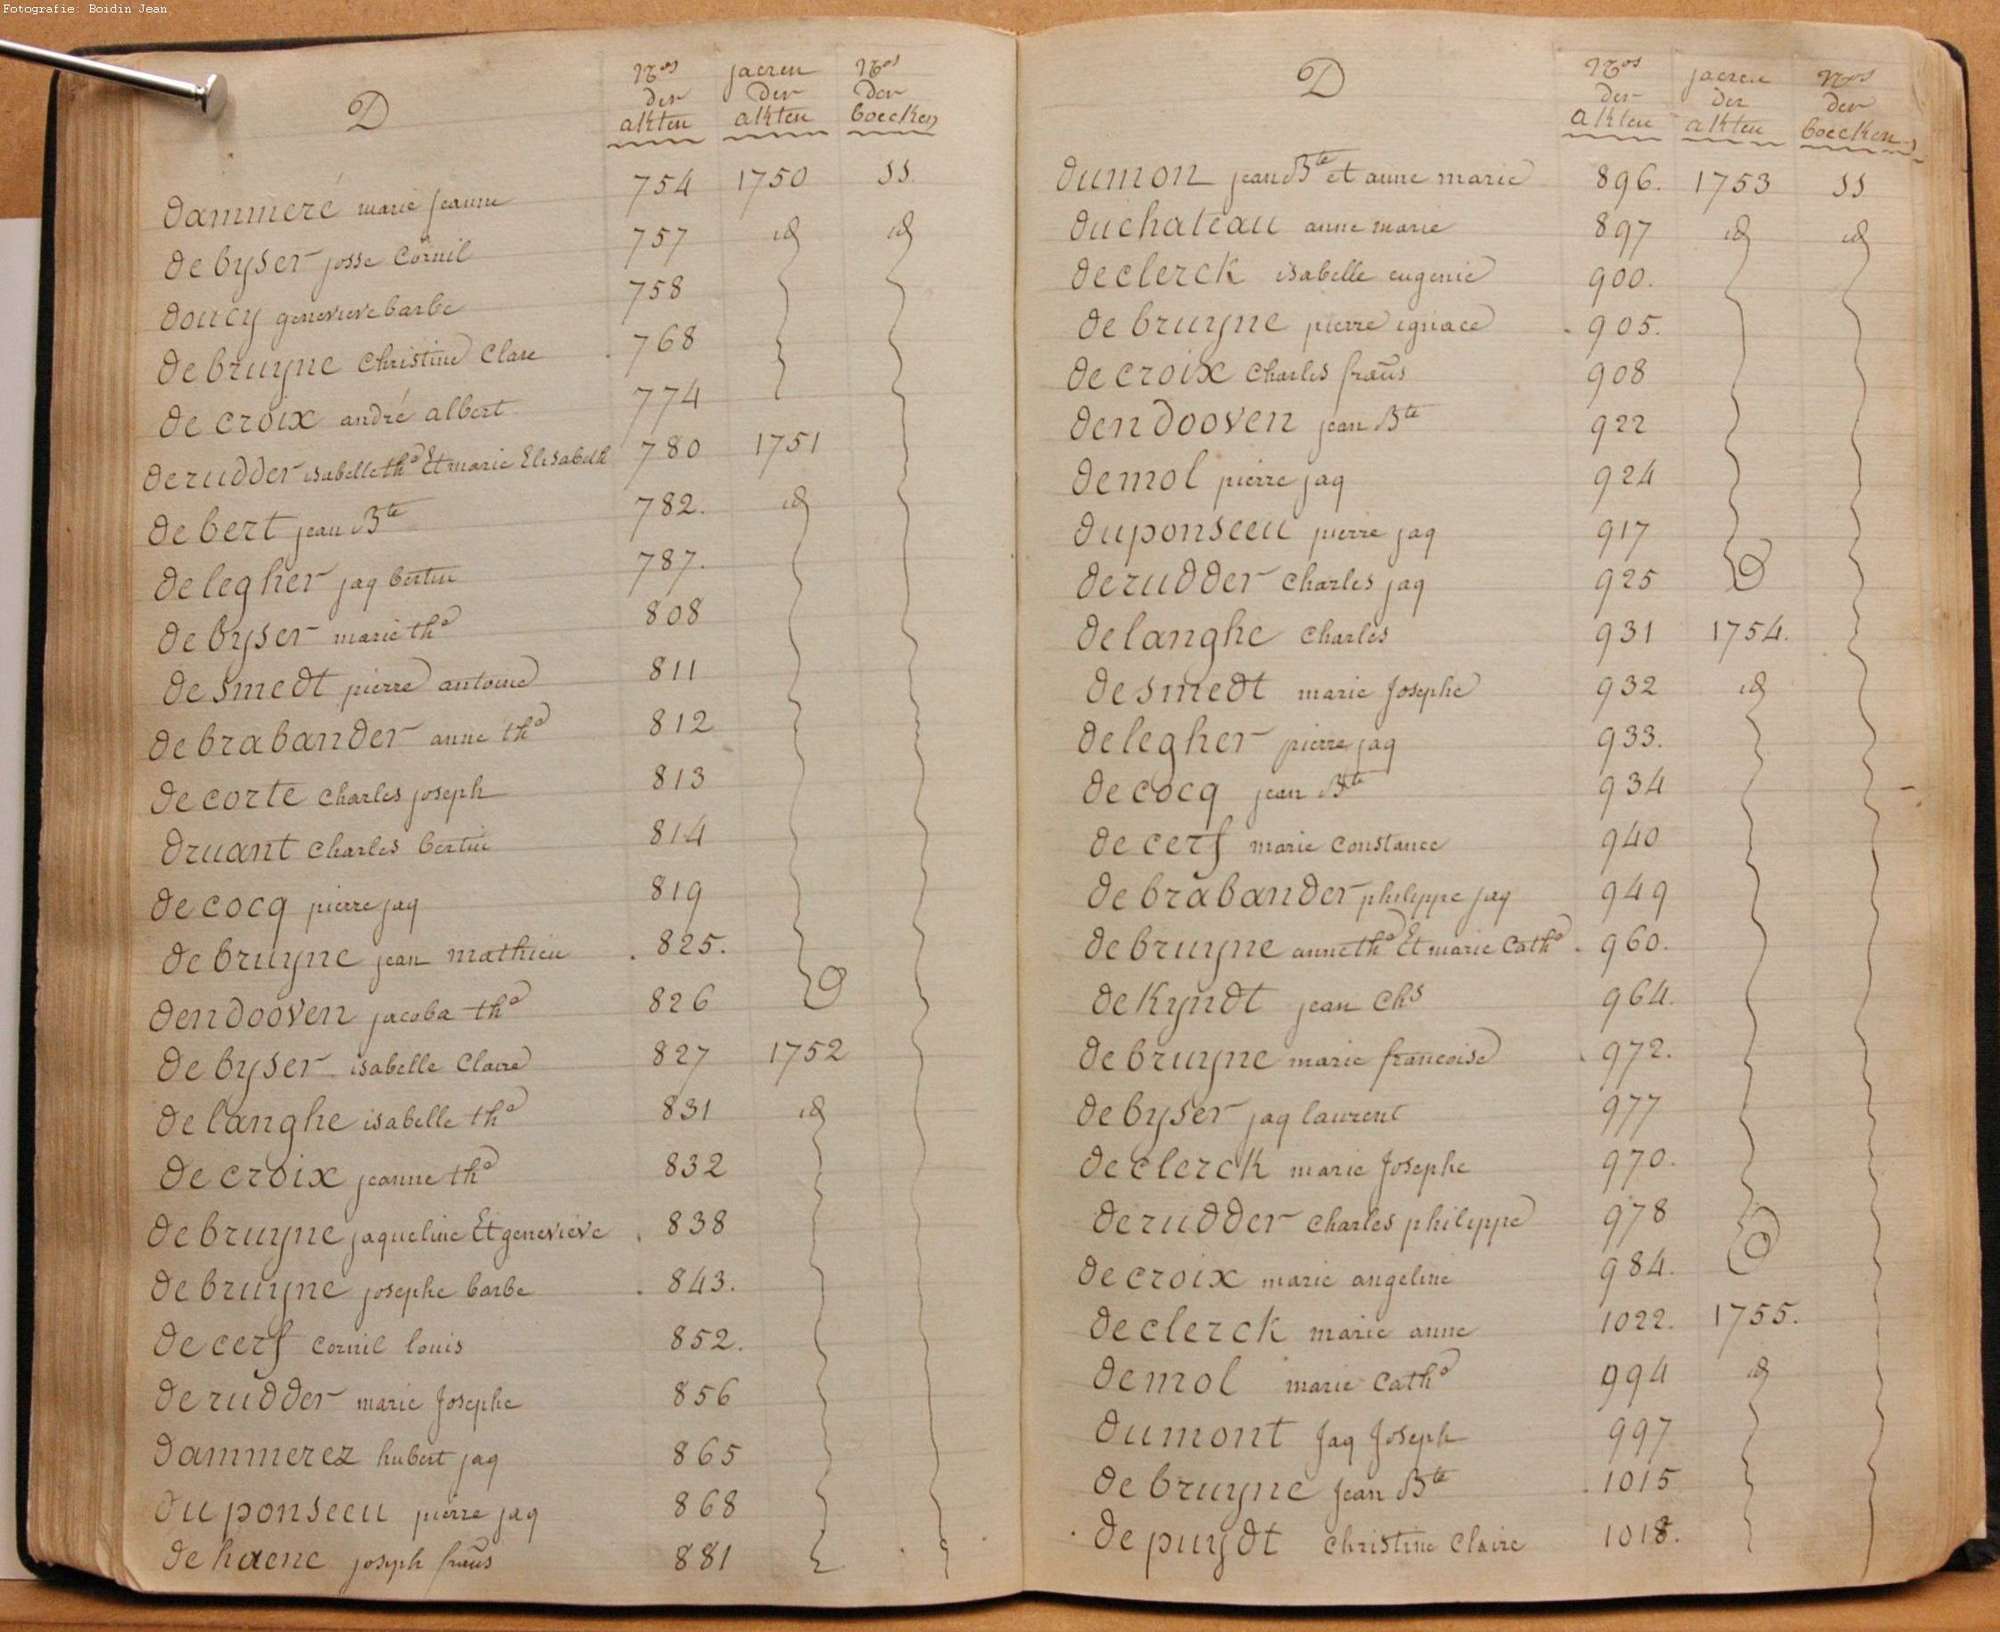 Fotografie: Boidin Jean
D
Nos der akten
jaeren der akten
Nos der boecken
dammeré marie jeanne 754 1750 SS.
de byser josse Cornil 757 id id
doucy genevieve barbe 758
de bruyne Christine Clare . 768
de croix andré albert 774
de rudder isabelle tha Et marie Elisabeth 780 1751
de bert jean Bte 782. id
de legher jaq bertin 787.
de byser marie tha 808
de smedt pierre antoine 811
de brabander anne tha 812
de corte Charles joseph 813
druant Charles bertin 814
de cocq pierre jaq 819
de bruyne jean mathieu . 825.
dendooven jacoba tha 826
de byser isabelle Claire 827 1752
de langhe isabelle tha 831 id
de croix jeanne tha 832
de bruyne jaqueline Et geneviéve . 838
de bruyne josephe barbe . 843.
de cerf Cornil louis 852.
de rudder marie Josephe 856
dammerez hubert jaq 865
duponseeu pierre jaq 868
de haene joseph frans 881
D
Nos der akten
jaeren der akten
Nos der boecken
dumon jean Bte et anne marie 896. 1753 SS
duchateau anne marie 897 id id
de clerck isabelle eugenie 900.
de bruyne pierre ignace . 905.
de croix Charles frans 908
dendooven jean Bte 922
de mol pierre jaq 924
duponseeu pierre jaq 917
de rudder Charles jaq 925
de langhe Charles 931 1754.
de smedt marie Josephe 932 id
de legher pierre jaq 933.
de cocq jean Bte 934
de cerf marie Constance 940
de brabander philippe jaq 949
de bruyne anne tha Et marie Catha . 960.
de Kyndt jean Chs 964.
de bruyne marie francoise . 972.
de byser jaq laurent 977
de clerck marie Josephe 970.
de rudder Charles philippe 978
de croix marie angeline 984.
de clerck marie anne 1022. 1755.
de mol marie Catha 994 id
dumont Jaq Joseph 997
de bruyne Jean Bte . 1015
. de puydt Christine Claire 1018.